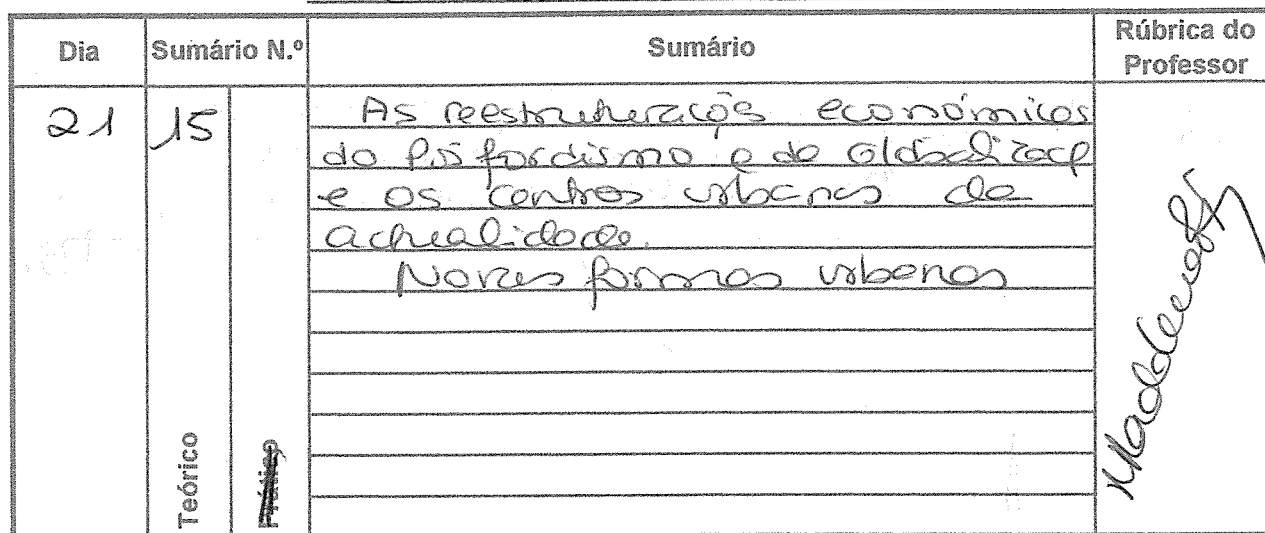 Dia Sumário N.º Sumário Rúbrica do Professor
21 15 As reestruturações económicas
do Pós fordismo e da Globalizaç
e os centros urbanos da
actualidade.
Novas formas urbanas
Teórico Prático